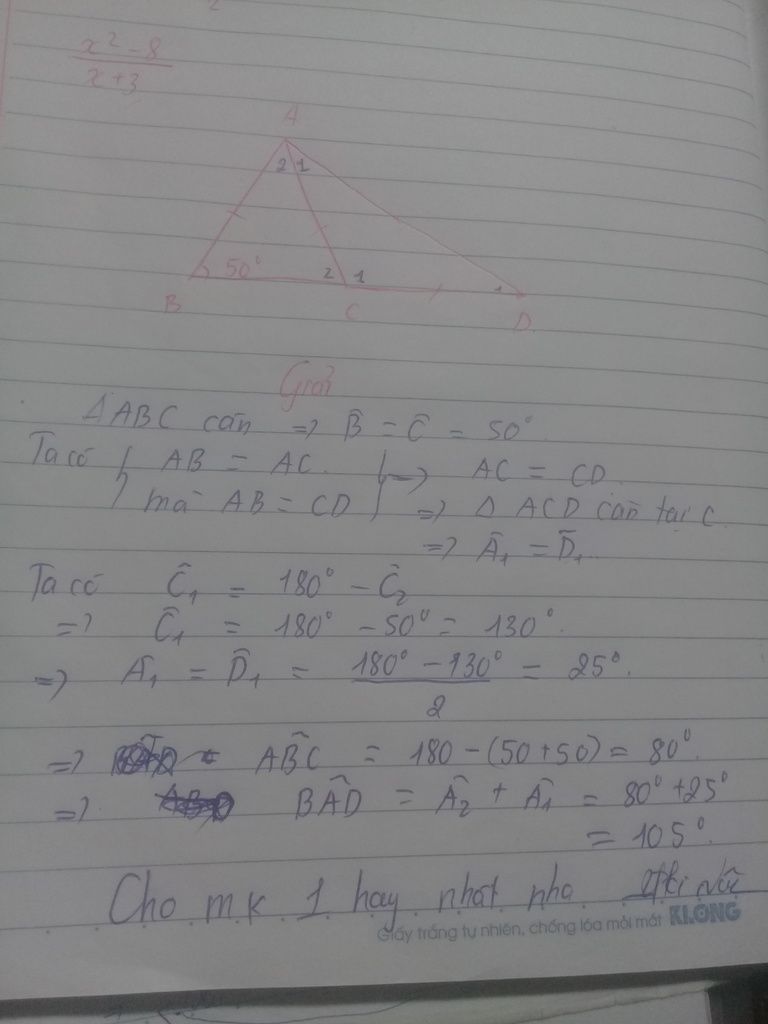 x² - 8
x + 3
A
2 1
50°
2 1
B
C
D
Giải
ΔABC cân => B̂ = Ĉ = 50°
Ta có { AB = AC } => AC = CD
mà AB = CD => Δ ACD cân tại C
=> Â₁ = D̂₁
Ta có Ĉ₁ = 180° - Ĉ₂
=> Ĉ₁ = 180° - 50° = 130°.
=> Â₁ = D̂₁ = 180° - 130° = 25°.
2
=> AB̂C = 180 - (50 + 50) = 80°.
=> BÂD = Â₂ + Â₁ = 80° + 25°
= 105°.
Cho mk 1 hay nhất nha
Giấy trắng tự nhiên, chống lóa mỏi mắt KLONG